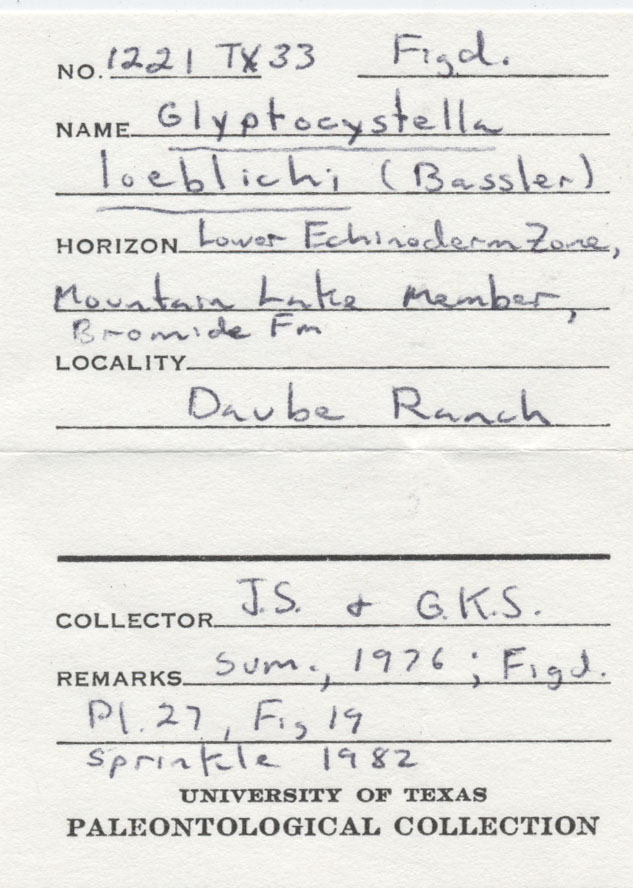 NO. 1221 TX 33 Figd.
NAME Glyptocystella
loeblichi (Bassler)
HORIZON Lower Echinoderm Zone,
Mountain Lake Member,
Bromide Fm
LOCALITY
Daube Ranch
COLLECTOR J.S. & G.K.S.
REMARKS Sum., 1976 ; Figd.
Pl. 27, Fig 19
Sprinkle 1982
UNIVERSITY OF TEXAS
PALEONTOLOGICAL COLLECTION